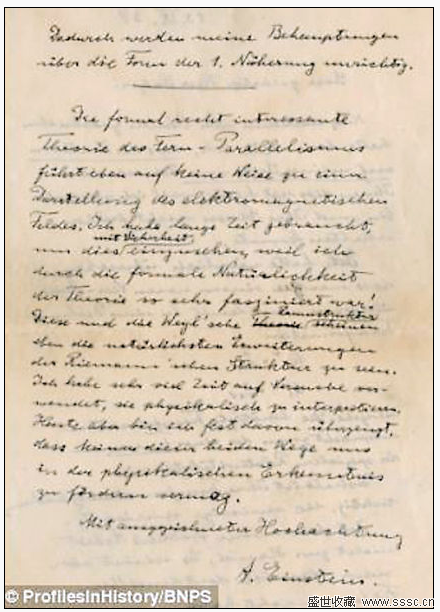 Dadurch werden meine Behauptungen
über die Form der 1. Näherung unrichtig.
Die formal recht interessante
Theorie des Fern-Parallelismus
führt eben auf keine Weise zu einer
Darstellung des elektromagnetischen
Feldes. Ich habe lange Zeit gebraucht,
mit Sicherheit
um dies einzusehen, weil ich
durch die formale Natürlichkeit
der Theorie so sehr fasziniert war!
Raumstruktur
Diese und die Weyl'sche Theorie scheinen
eben die natürlichsten Erweiterungen
der Riemann'schen Struktur zu sein.
Ich habe sehr viel Zeit auf Versuche ver-
wendet, sie physikalisch zu interpretieren.
Heute aber bin ich fest davon überzeugt,
dass keiner dieser beiden Wege uns
in der physikalischen Erkenntnis
zu fördern vermag.
Mit ausgezeichneter Hochachtung
A. Einstein.
© ProfilesInHistory/BNPS
盛世收藏 www.sssc.cn